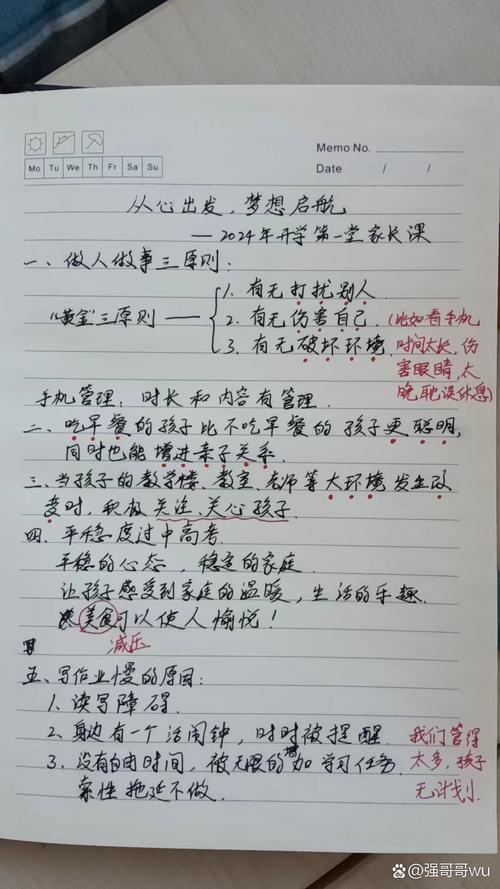 Memo No.
Mo Tu We Th Fr Sa Su
Date / /
从心出发，梦想启航
——2024年开学第一堂家长课
一、做人做事三原则：
"黄金"三原则——
1. 有无打扰别人
2. 有无伤害自己（比如看手机
3. 有无破坏环境 时间太长，伤
害眼睛，太
晚耽误休息）
手机管理：时长和内容有管理.
二、吃早餐的孩子比不吃早餐的孩子更聪明，
同时也能增进亲子关系.
三、当孩子的教学楼、教室、老师等大环境发生改
变时，积极关注、关心孩子.
四、平稳度过中高考.
平稳的心态，稳定的家庭.
让孩子感受到家庭的温暖，生活的乐趣.
美食可以使人愉悦！
减压
五、写作业慢的原因：
1. 读写障碍.
2. 身边有一个活闹钟，时时被提醒. 我们管得
3. 没有自由时间，被无限的增加学习任务. 太多，孩子
索性拖延不做. 无计划.
强哥哥wu